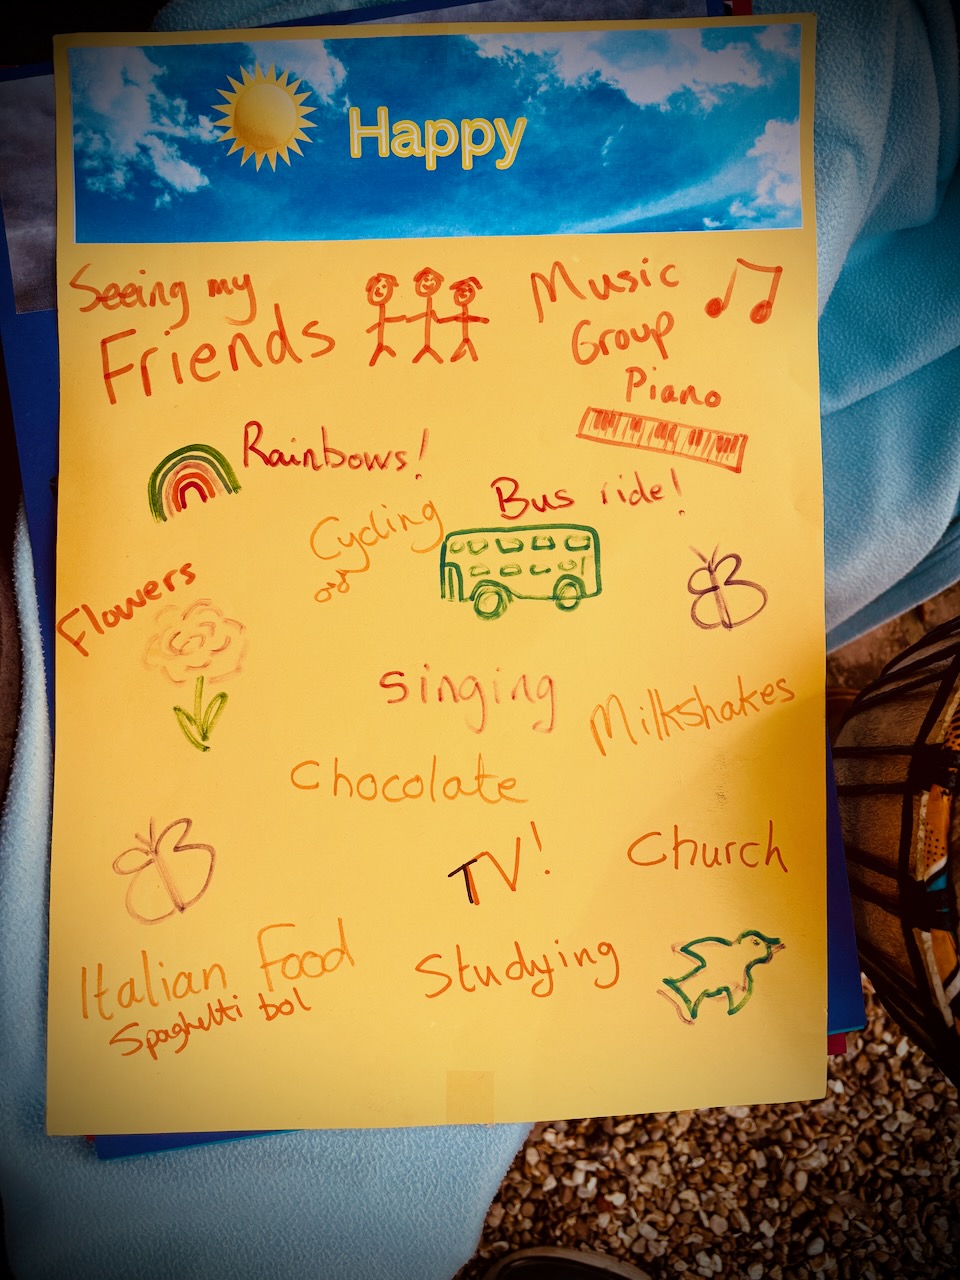 Happy
Seeing my
Friends
Music
Group
Piano
Rainbows!
Cycling
Bus ride!
Flowers
Singing
Milkshakes
Chocolate
TV!
Church
Italian Food
Spaghetti bol
Studying